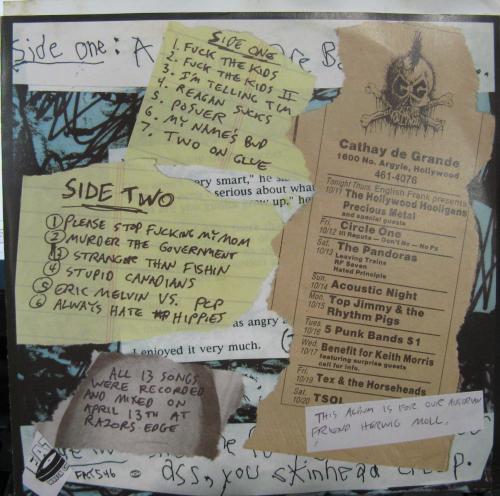 Side one: A
SIDE ONE
1. FUCK THE KIDS
2. FUCK THE KIDS II
3. I'M TELLING TIM
4. REAGAN SUCKS
5. POSUER
6. MY NAME'S BUD
7. TWO ON GLUE
very smart," he
serious about what
ow up," he
SIDE TWO
1 PLEASE STOP FUCKING MY MOM
2 MURDER THE GOVERNMENT
3 STRANGER THAN FISHIN
4 STUPID CANADIANS
5 ERIC MELVIN VS. PCP
6 ALWAYS HATE HIPPIES
as angry
I enjoyed it very much.
ALL 13 SONGS
WERE RECORDED
AND MIXED ON
APRIL 13TH AT
RAZORS EDGE
FAT546
Cathay de Grande
1600 No. Argyle, Hollywood
461-4076
Tonight Thurs. English Frank presents
10/11 The Hollywood Hooligans
Precious Metal
and special guests
Fri. 10/12 Circle One
Ill Repute — Don't No — No Fx
Sat. 10/13 The Pandoras
Leaving Trains
RF Seven
Hated Principle
Sun. 10/14 Acoustic Night
Mon. 10/15 Top Jimmy & the
Rhythm Pigs
Tues. 10/16 5 Punk Bands $1
Wed. 10/17 Benefit for Keith Morris
featuring surprise guests
call for info.
Fri. 10/19 Tex & the Horseheads
Sat. 10/20 TSOL
THIS ALBUM IS FOR OUR AUSTRIAN
FRIEND HERWIG MOLL.
ass, you skinhead